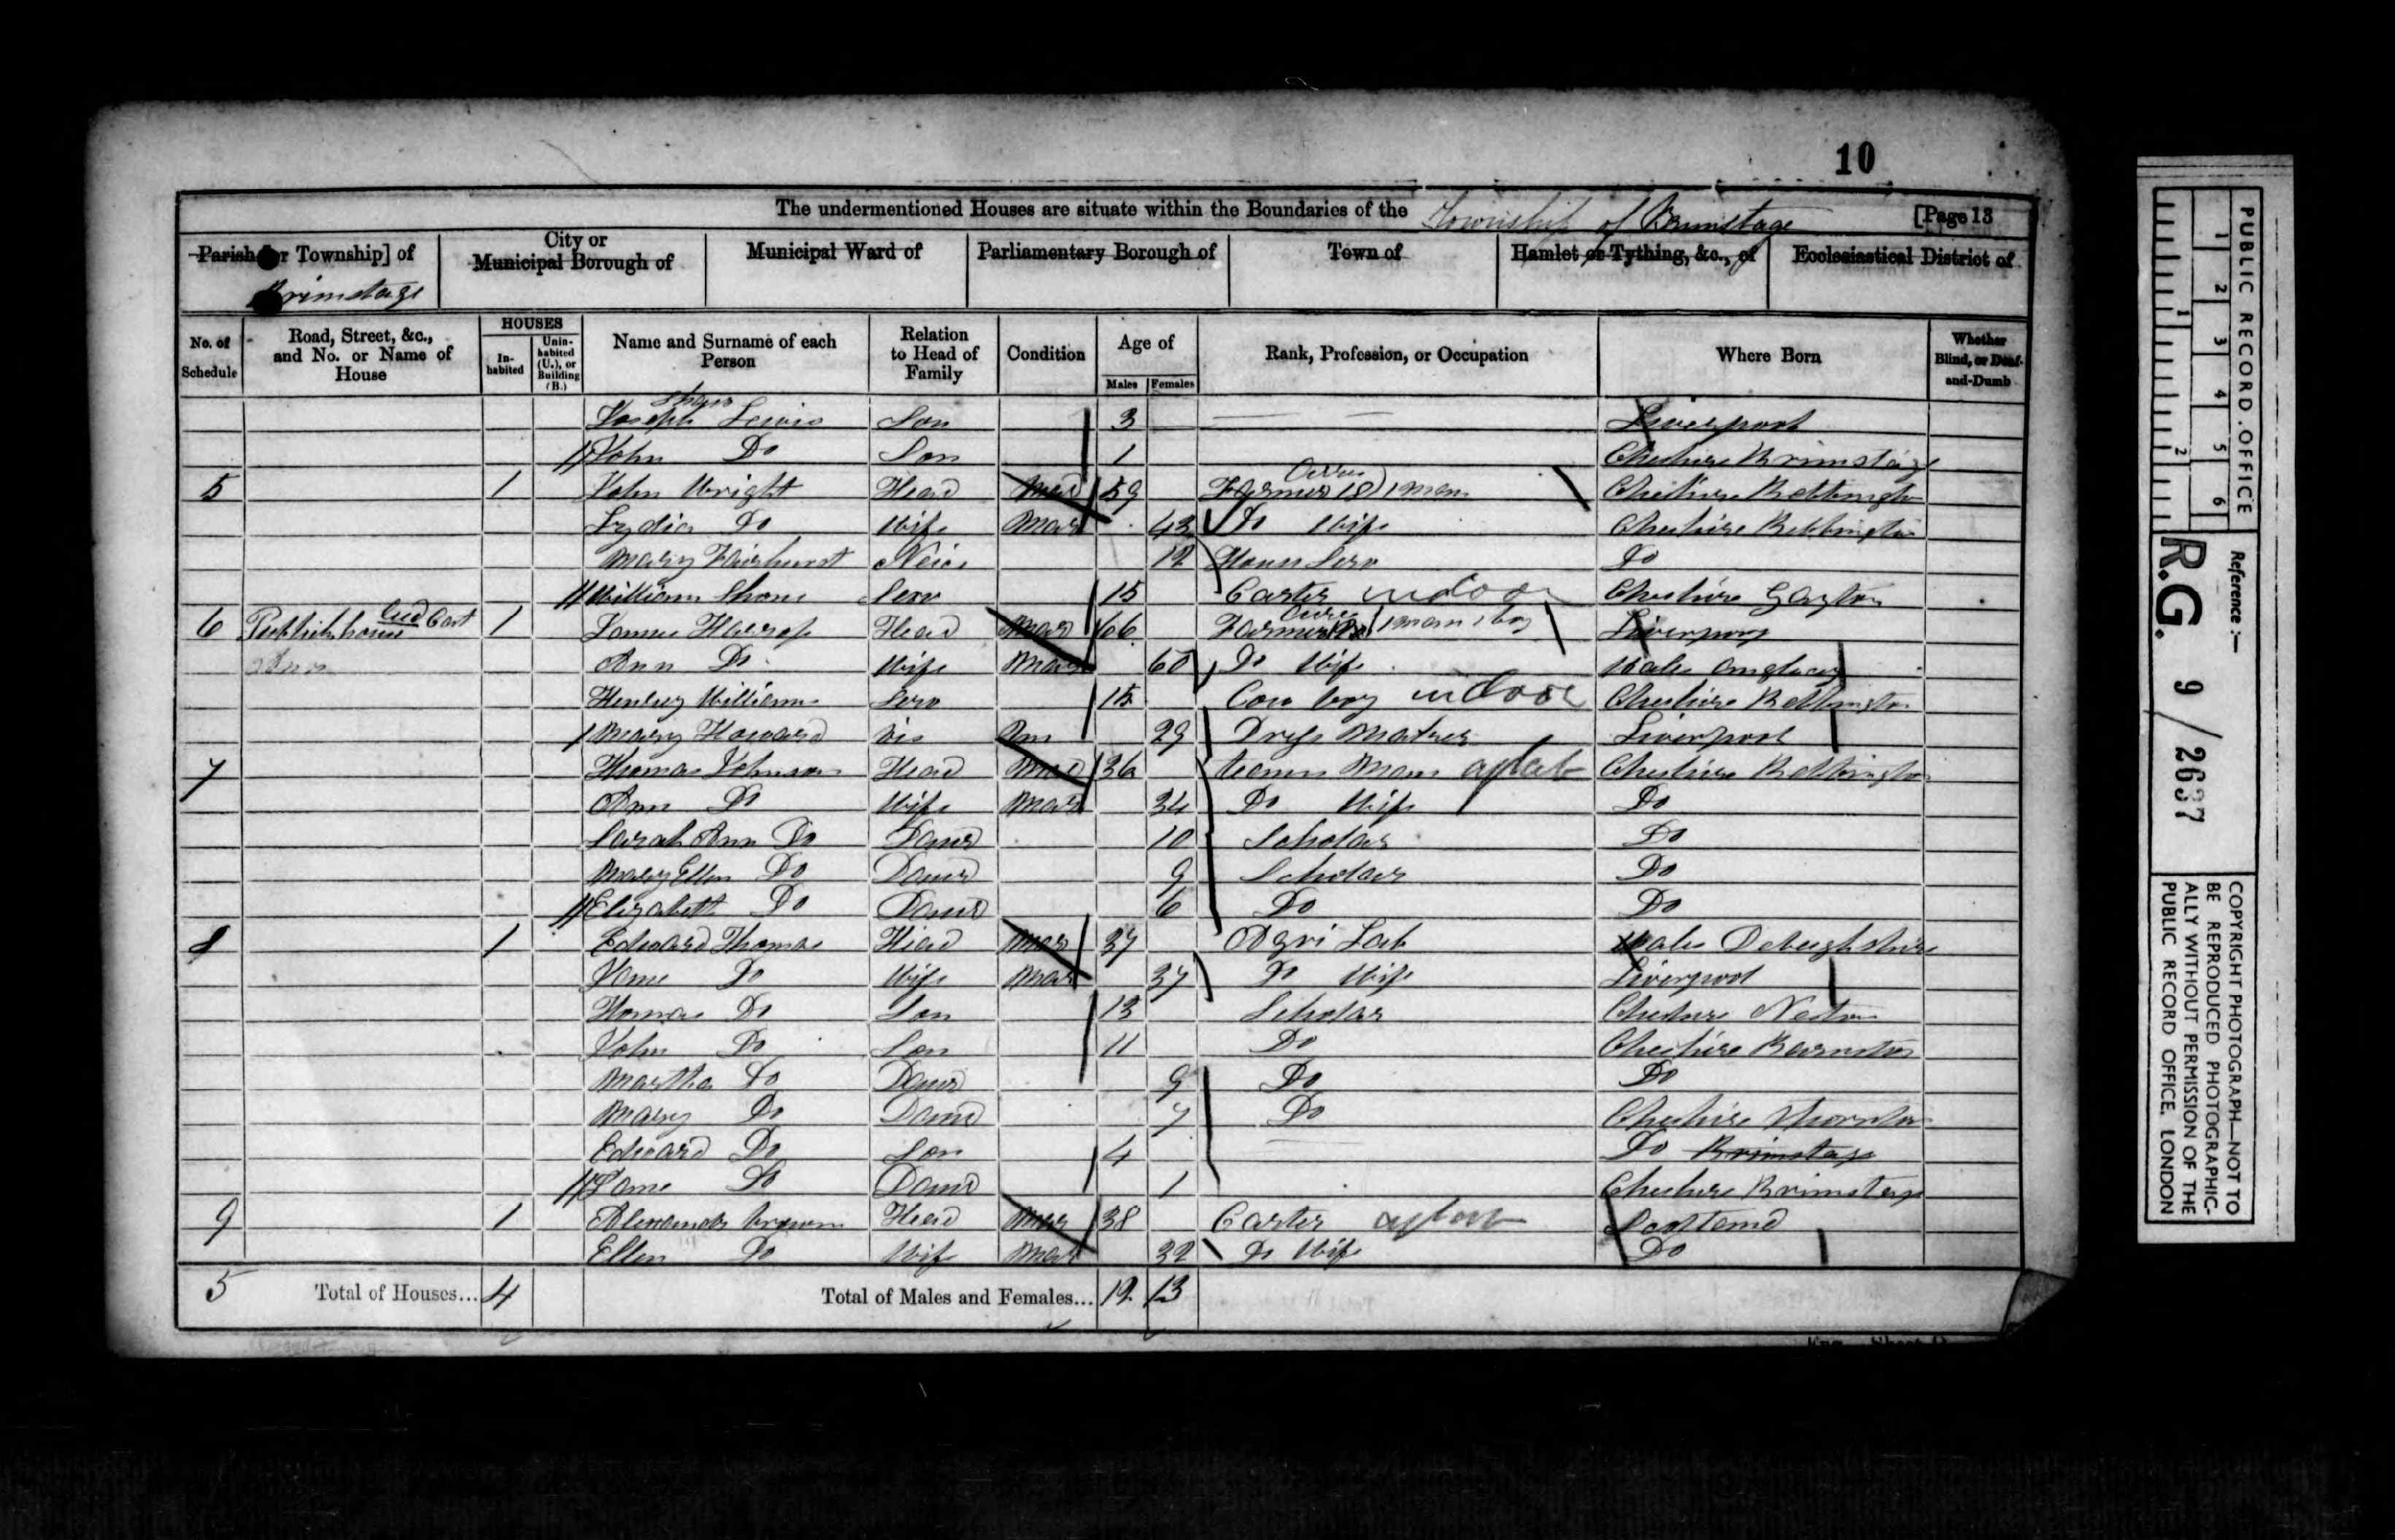 10
The undermentioned Houses are situate within the Boundaries of the Township of Brimstage [Page 13
Parish [or Township] of Brimstage
City or Municipal Borough of
Municipal Ward of
Parliamentary Borough of
Town of
Hamlet or Tything, &c., of
Ecclesiastical District of
No. of Schedule
Road, Street, &c., and No. or Name of House
HOUSES
In-habited
Unin-habited (U.), or Building (B.)
Name and Surname of each Person
Relation to Head of Family
Condition
Age of
Males
Females
Rank, Profession, or Occupation
Where Born
Whether Blind, or Deaf-and-Dumb
Joseph Lewis Son 3 Liverpool
John Do Son 1 Cheshire Brimstage
5 1 John Wright Head Mar 59 Farmer 18 Acres 1 man Cheshire Bebbington
Lydia Do Wife Mar 43 Do Wife Cheshire Bebbington
Mary Fairhurst Neice 12 House Serv Do
William Shone Serv 15 Carter indoor Cheshire Gayton
6 Publichouse 1 James Harrop Head Mar 66 Farmer Acres 1 man 1 boy Liverpool
Ann Do Wife Mar 60 Do Wife Wales Anglesey
Henley Williams Serv 15 Cow boy indoor Cheshire Bebbington
Mary Howard Vis Un 29 Dress Maker Liverpool
7 Thomas Johnson Head Mar 36 teams Man ag lab Cheshire Bebbington
Ann Do Wife Mar 34 Do Wife Do
Sarah Ann Do Daur 10 Scholar Do
Mary Ellen Do Daur 9 Scholar Do
Elizabeth Do Daur 6 Do Do
8 1 Edward Thomas Head Mar 37 Agri Lab Wales Debighshire
Jane Do Wife Mar 37 Do Wife Liverpool
Thomas Do Son 13 Scholar Cheshire Neston
John Do Son 11 Do Cheshire Barnston
Martha Do Daur 9 Do Do
Mary Do Daur 7 Do Cheshire Thornton
Edward Do Son 4 Do Brimstage
Jane Do Daur 1 Cheshire Brimstage
9 1 Alexander brown Head Mar 38 Carter ag lab Scotland
Ellen Do Wife Mar 32 Do Wife Do
5 Total of Houses... 4 Total of Males and Females... 12 13
PUBLIC RECORD OFFICE
1 2 3 4 5 6
1 2
Reference :-
R.G. 9 / 2637
COPYRIGHT PHOTOGRAPH—NOT TO
BE REPRODUCED PHOTOGRAPHIC-
ALLY WITHOUT PERMISSION OF THE
PUBLIC RECORD OFFICE, LONDON